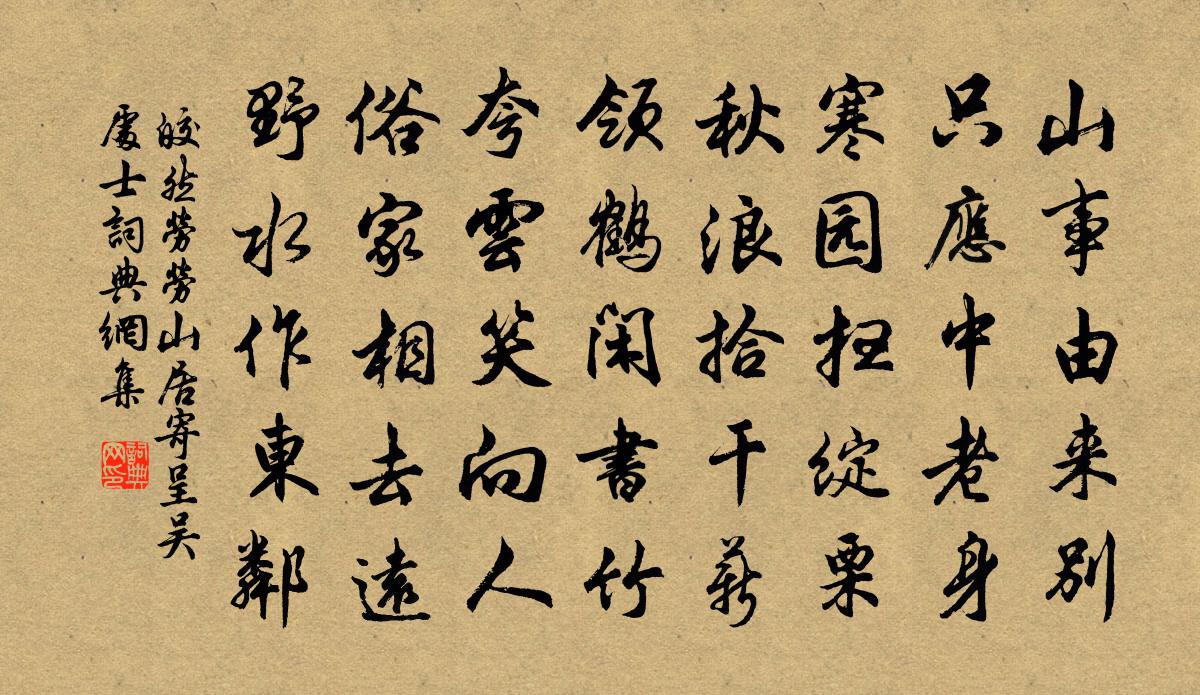 山事由来别
只應中老身
寒园扫綻栗
秋浪拾干薪
領鶴闲書竹
夸雲笑向人
俗家相去遠
野水作東鄰
皎然勞勞山居寄呈吴
處士詞典網集
詞典
网印